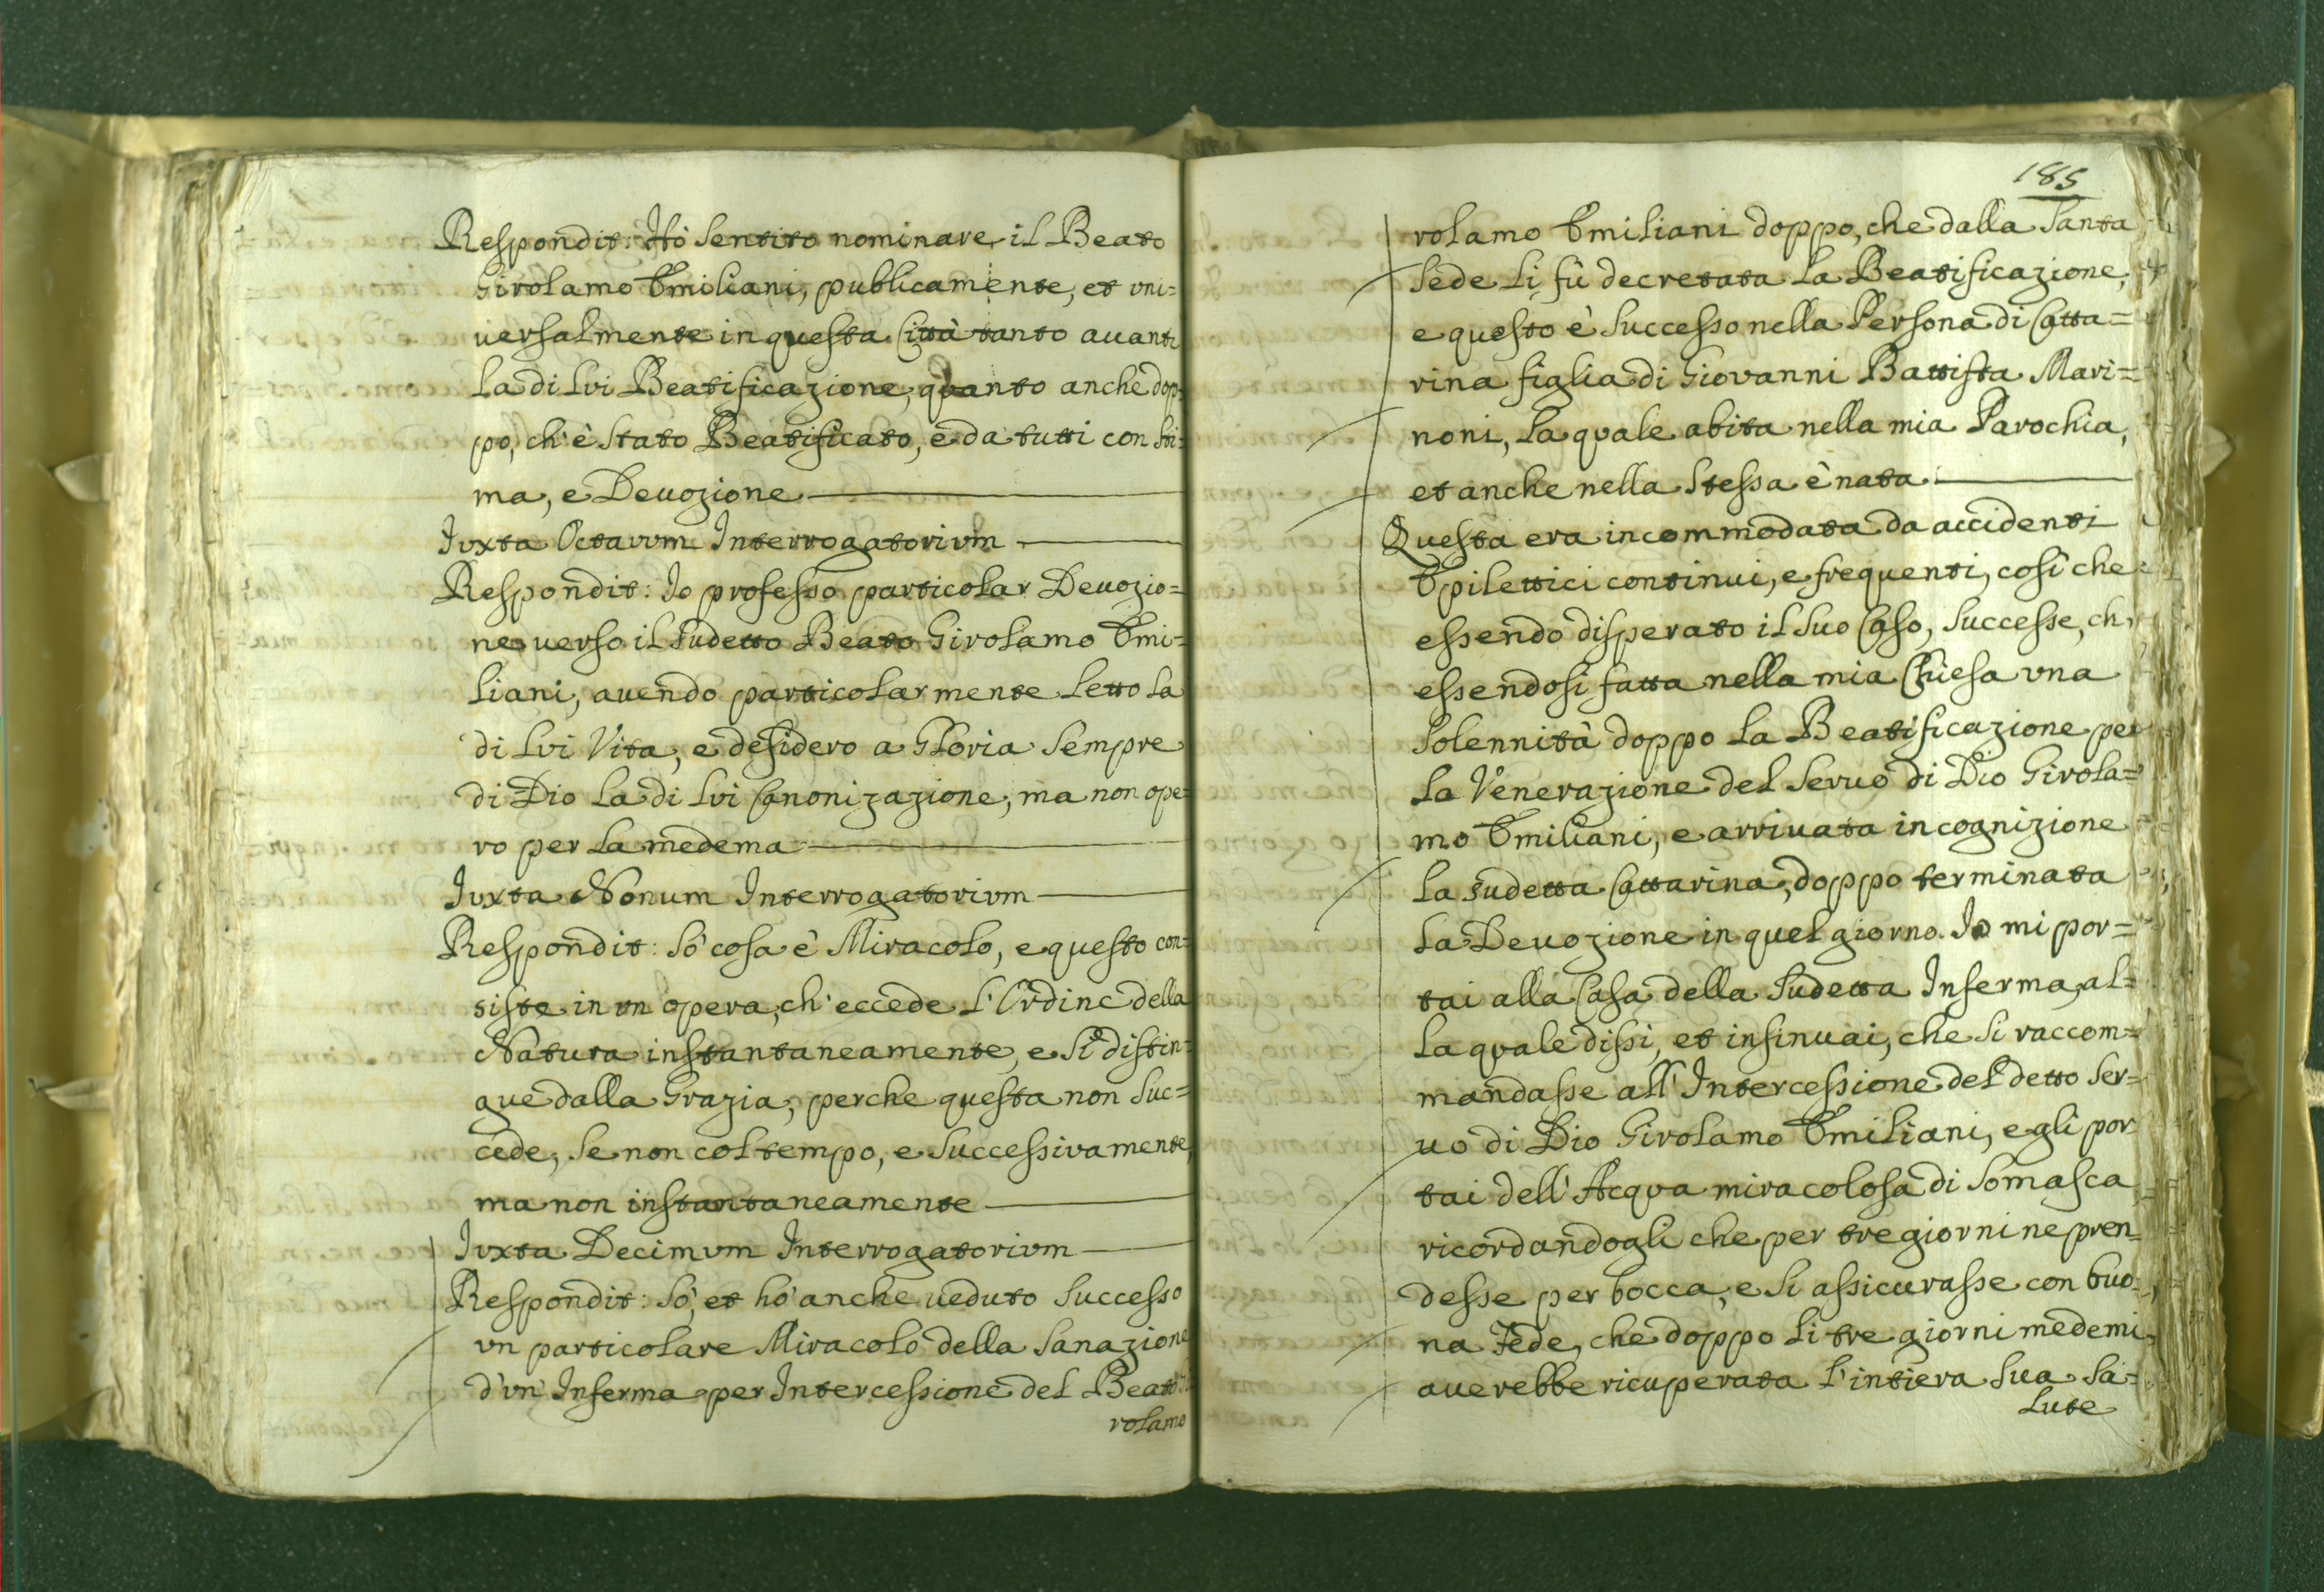 Respondit: Hò sentito nominare il Beato
Girolamo Emiliani, publicamente, et vni=
uersalmente in questa Città tanto auanti
la di lui Beatificazione, quanto anche dop=
po, ch'è stato Beatificato, è da tutti con sti=
ma, e Deuozione
Iuxta Octauum Interrogatorium
Respondit: Io professo particolar Deuozio=
ne uerso il sudetto Beato Girolamo Emi=
liani, auendo particolarmente letto la
di lui Vita, e desidero a Gloria sempre
di Dio la di lui Canonizazione, ma non ope=
ro per la medema
Iuxta Nonum Interrogatorium
Respondit: Sò cosa è Miracolo, e questo con=
siste in un opera, ch'eccede l'Ordine della
Natura instantaneamente, e si distin=
gue dalla Grazia, perche questa non suc=
cede, se non col tempo, e successivamente,
ma non instantaneamente
Iuxta Decimum Interrogatorium
Respondit: Sò, et hò anche ueduto successo
vn particolare Miracolo della Sanazione
d'un Inferma per Intercessione del Beato
rolamo
185
rolamo Emiliani doppo, che dalla Santa
Sede li fù decretata la Beatificazione,
e questo è successo nella Persona di Catta=
rina figlia di Giovanni Battista Mari=
noni, la quale abita nella mia Parochia,
et anche nella stessa è nata
Questa era incommodata da accidenti
Epilettici continui, e frequenti, così che
essendo disperato il suo Caso, successe, ch,
essendosi fatta nella mia Chiesa vna
Solennità doppo la Beatificazione per
la Venerazione del Seruo di Dio Girola=
mo Emiliani, e arriuata in cognizione
la sudetta Cattarina, doppo terminata
la Deuozione in quel giorno. Io mi por=
tai alla Casa della sudetta Inferma, al=
la quale dissi, et insinuai, che si raccom=
mandasse all'Intercessione del detto Ser=
uo di Dio Girolamo Emiliani, e gli por
tai dell'Acqua miracolosa di Somasca
ricordandogli che per tre giorni ne pren=
desse per bocca, e si assicurasse con buo=
na Fede, che doppo li tre giorni medemi
auerebbe ricuperata l'intiera sua Sa=
lute